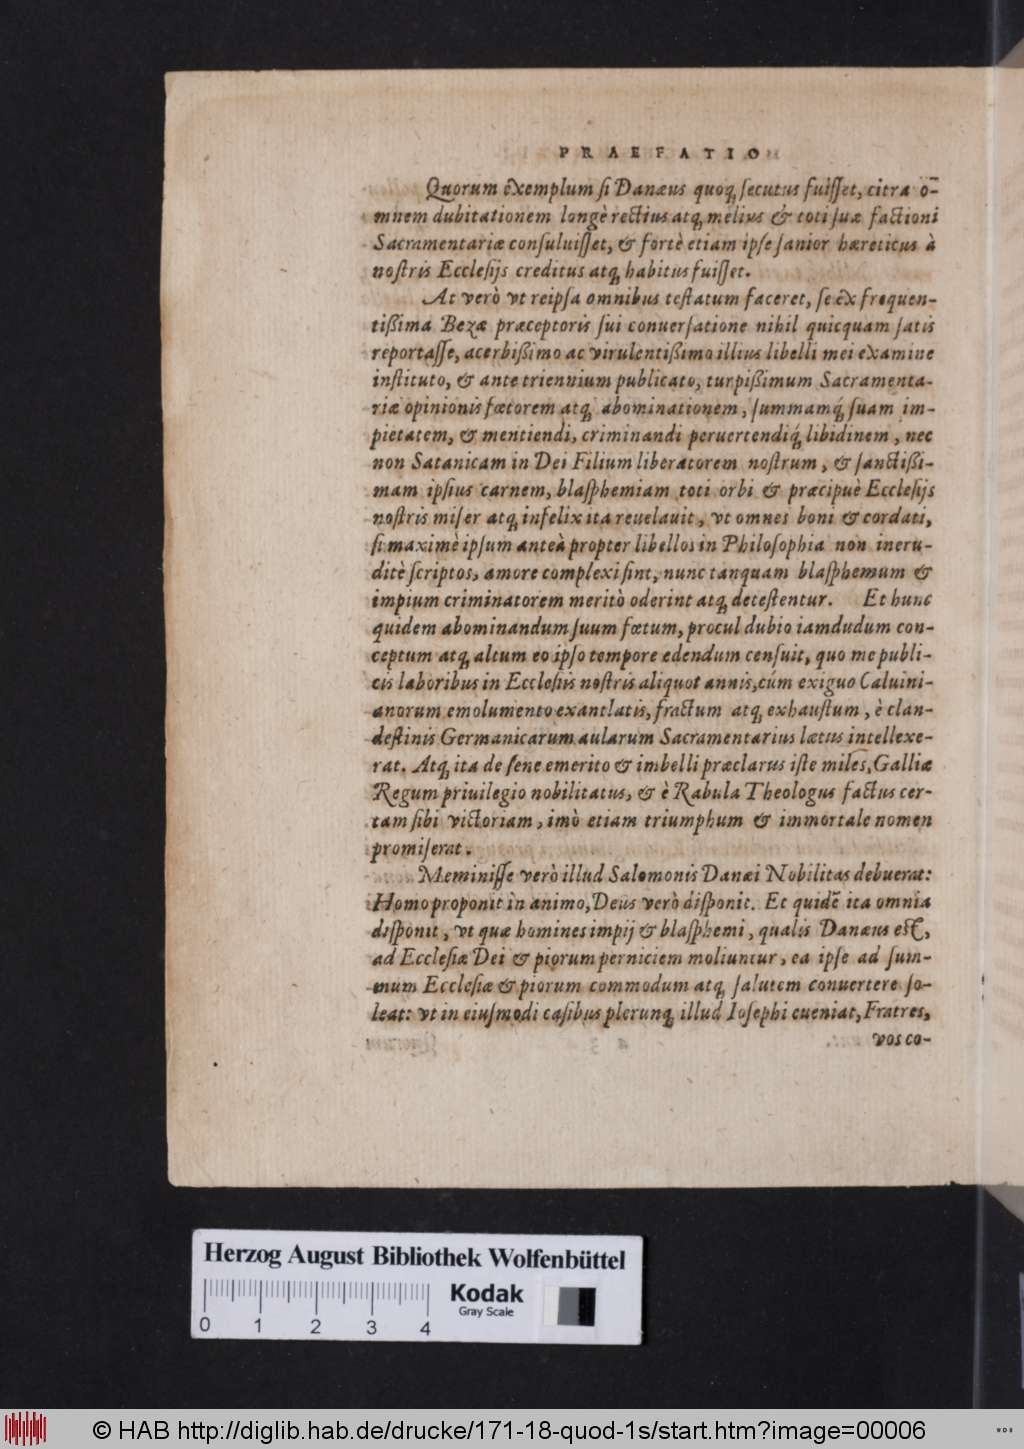 PRAEFATIO
Quorum exemplum ſi Danæus quoq; ſecutus fuiſſet, citra o-
mnem dubitationem longè rectius atq; melius & toti ſuæ factioni
Sacramentariæ conſuluiſſet, & fortè etiam ipſe ſanior hæreticus à
noſtris Eccleſijs creditus atq; habitus fuiſſet.
At verò vt reipſa omnibus teſtatum faceret, ſe ex frequen-
tißima Bezæ præceptoris ſui conuerſatione nihil quicquam ſatis
reportaſſe, acerbißimo ac virulentißimo illius libelli mei examine
inſtituto, & ante triennium publicato, turpißimum Sacramenta-
riæ opinionis fœtorem atq; abominationem, ſummamq́; ſuam im-
pietatem, & mentiendi, criminandi peruertendiq́; libidinem, nec
non Satanicam in Dei Filium liberatorem noſtrum, & ſanctißi-
mam ipſius carnem, blaſphemiam toti orbi & præcipuè Eccleſijs
noſtris miſer atq; infelix ita reuelauit, vt omnes boni & cordati,
ſi maximè ipſum anteà propter libellos in Philoſophia non ineru-
ditè ſcriptos, amore complexi ſint, nunc tanquam blaſphemum &
impium criminatorem meritò oderint atq; deteſtentur. Et hunc
quidem abominandum ſuum fœtum, procul dubio iamdudum con-
ceptum atq; altum eo ipſo tempore edendum cenſuit, quo me publi-
cis laboribus in Eccleſiis noſtris aliquot annis, cúm exiguo Caluini-
anorum emolumento exantlatis, fractum atq; exhauſtum, è clan-
deſtinis Germanicarum aularum Sacramentarius lætus intellexe-
rat. Atq; ita de ſene emerito & imbelli præclarus iſte miles, Galliæ
Regum priuilegio nobilitatus, & è Rabula Theologus factus cer-
tam ſibi victoriam, imò etiam triumphum & immortale nomen
promiſerat.
Meminiſſe verò illud Salomonis Danæi Nobilitas debuerat:
Homo proponit in animo, Deus verò diſponit. Et quidē ita omnia
diſponit, vt quæ homines impij & blaſphemi, qualis Danæus eſt,
ad Eccleſiæ Dei & piorum perniciem moliuntur, ea ipſe ad ſum-
mum Eccleſiæ & piorum commodum atq; ſalutem conuertere ſo-
leat: vt in eiuſmodi caſibus plerunq; illud Ioſephi eueniat, Fratres,
vos co-
Herzog August Bibliothek Wolfenbüttel
Kodak
Gray Scale
0 1 2 3 4
© HAB http://diglib.hab.de/drucke/171-18-quod-1s/start.htm?image=00006